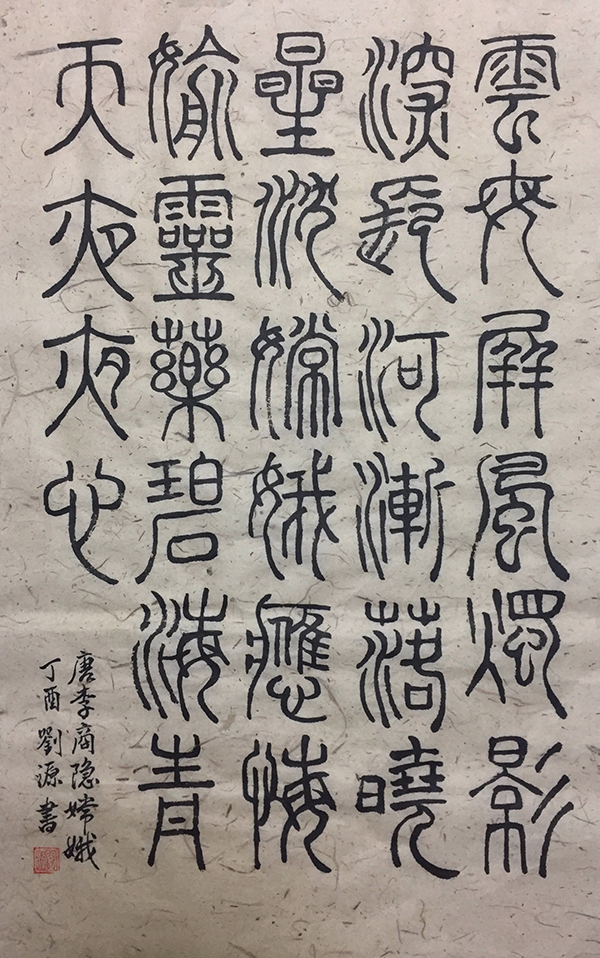 雲母屏風燭影
深長河漸落曉
星沈嫦娥應悔
媮靈藥碧海青
天夜夜心
唐李商隐嫦娥
丁酉劉源書